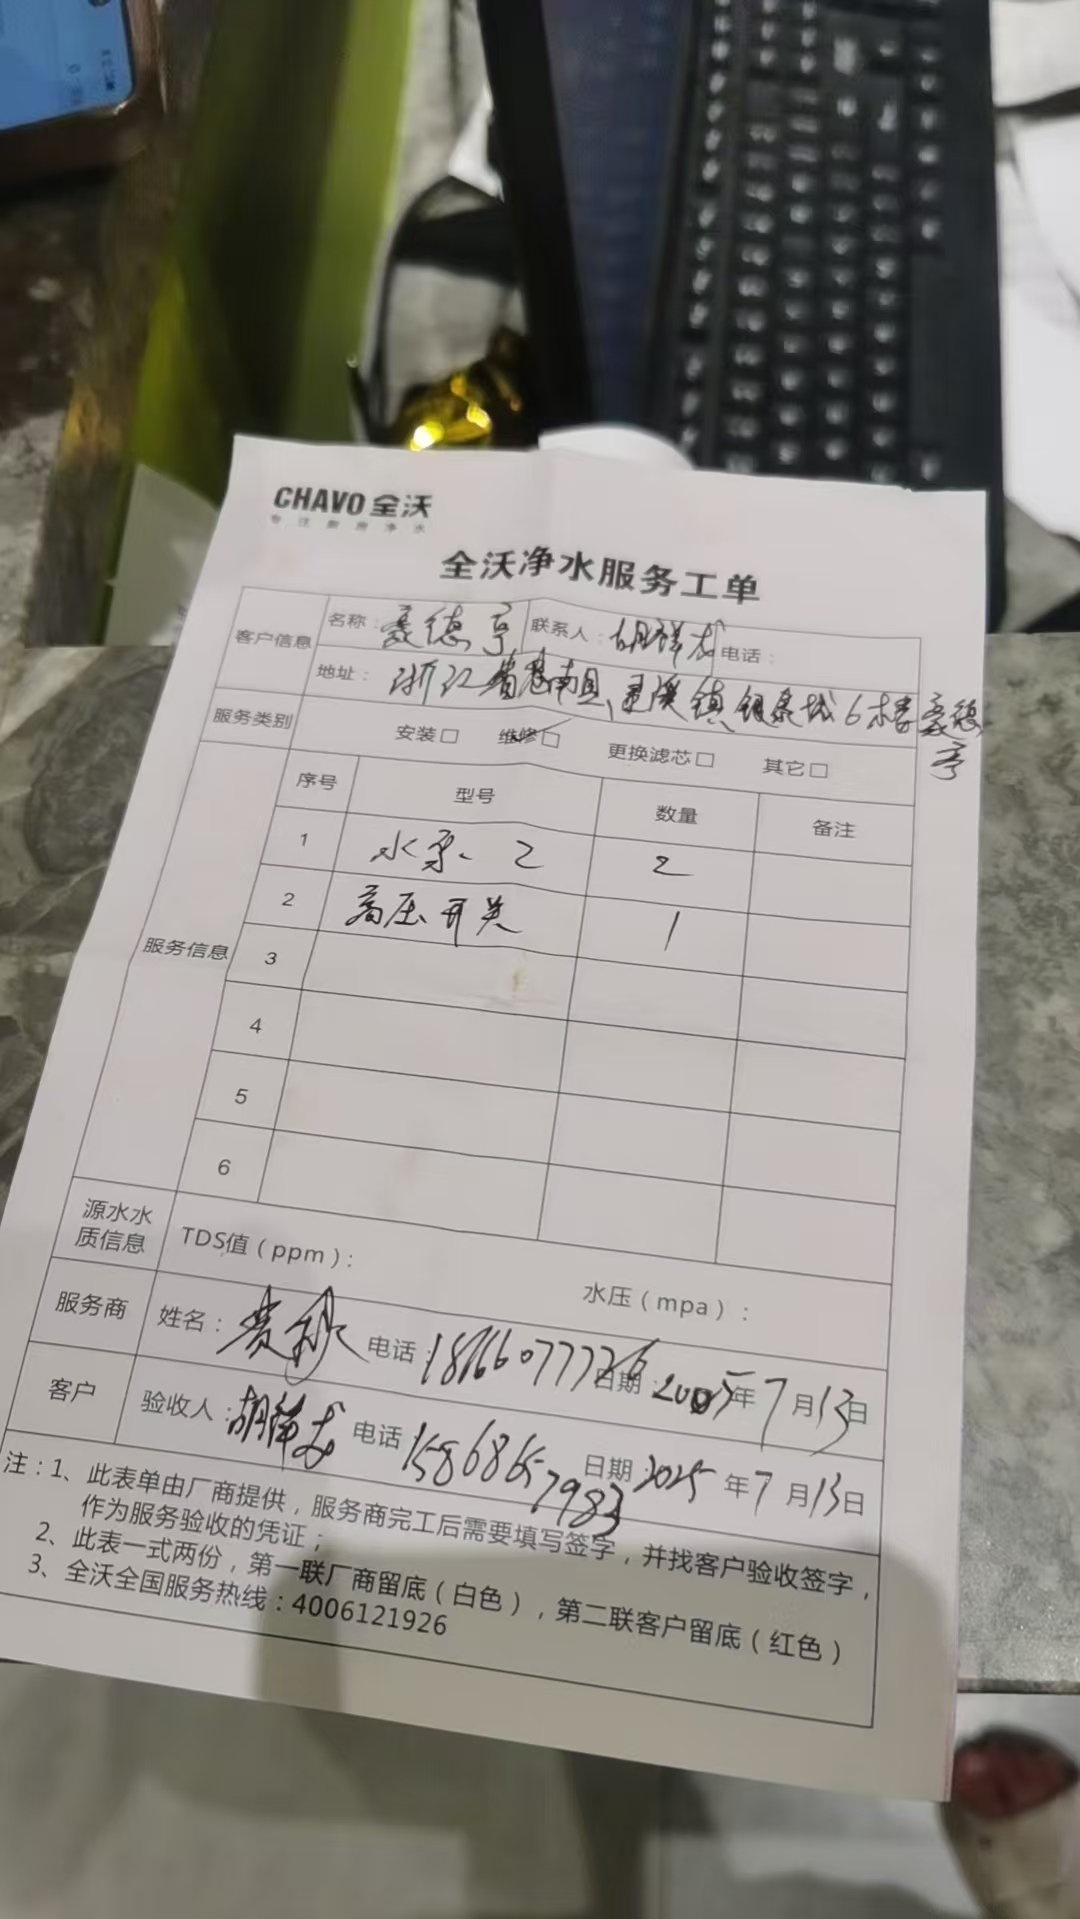 CHAVO 全沃
专注厨房净水
全沃净水服务工单
客户信息 名称：豪德亨 联系人：胡祥龙 电话：
地址：浙江省苍南县、灵溪镇 银泰城6楼豪德亨
服务类别 安装□ 维修□ 更换滤芯□ 其它□
服务信息
序号 型号 数量 备注
1 水泵、2 2
2 高压开关 1
3
4
5
6
源水水质信息 TDS值（ppm）： 水压（mpa）：
服务商 姓名： 电话：18766077726 日期：2005年7月13日
客户 验收人：胡祥龙 电话：15868657983 日期 2025年7月13日
注：1、此表单由厂商提供，服务商完工后需要填写签字，并找客户验收签字，
作为服务验收的凭证；
2、此表一式两份，第一联厂商留底（白色），第二联客户留底（红色）
3、全沃全国服务热线：4006121926